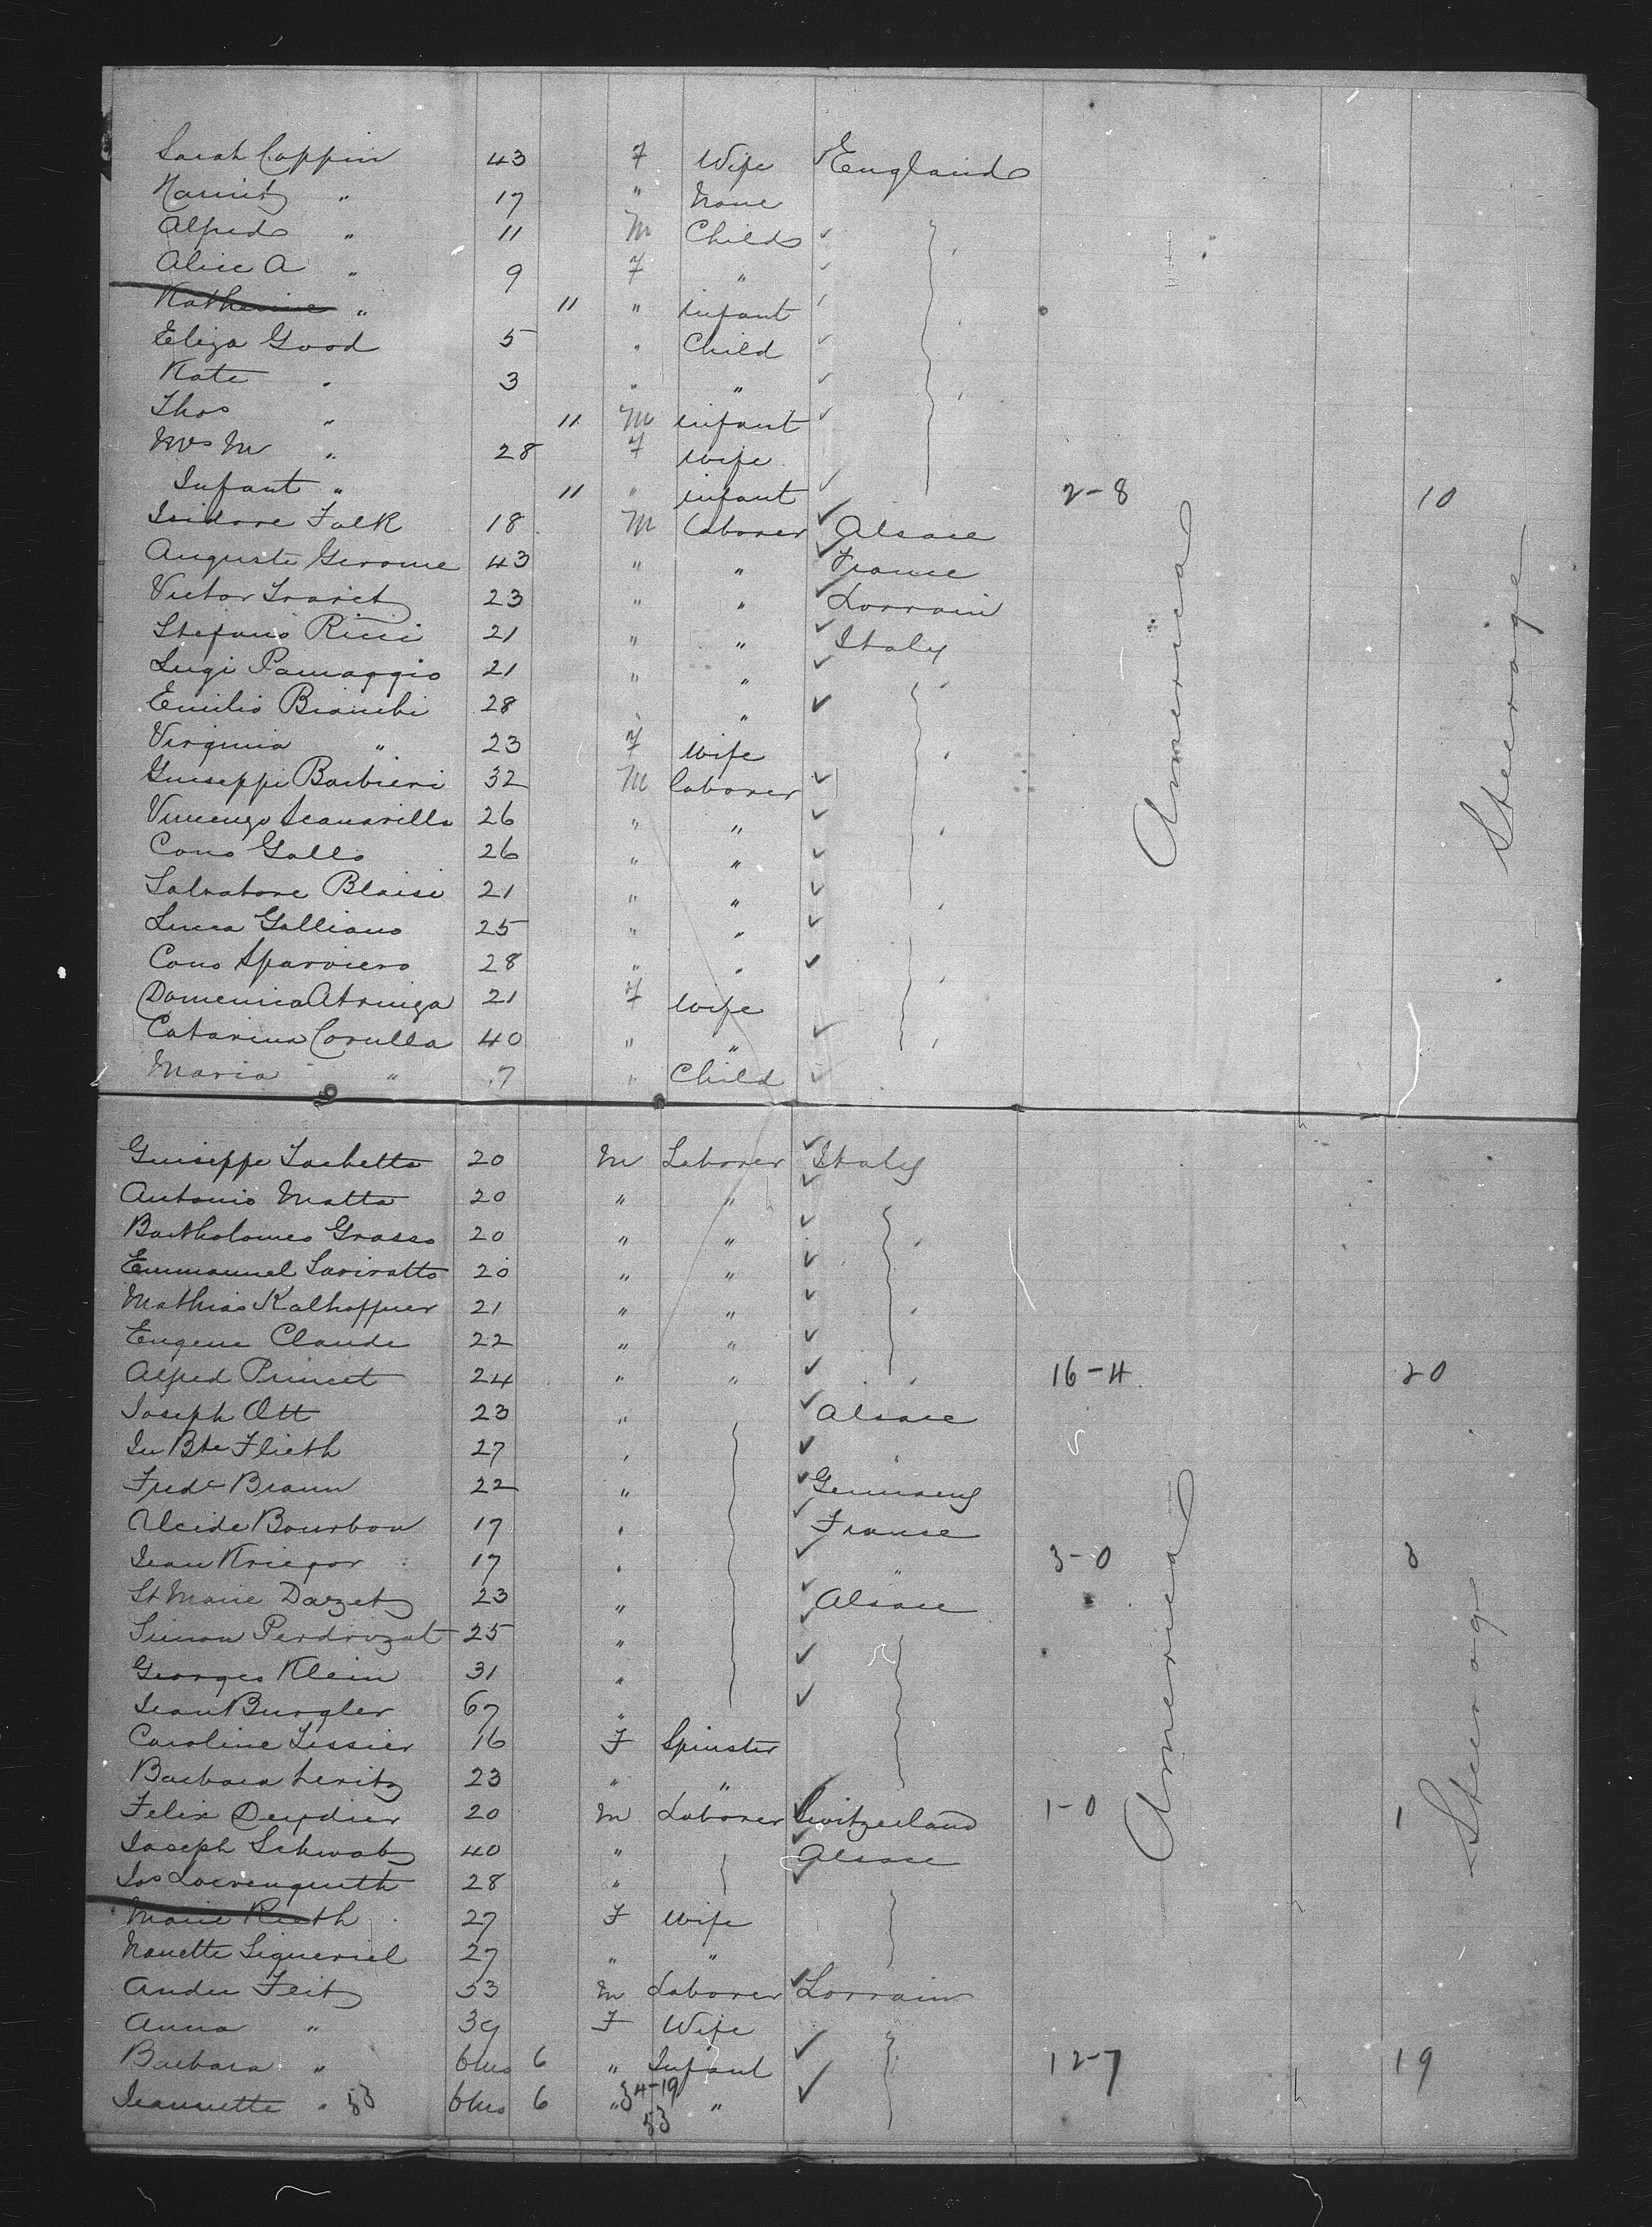 Sarah Coppin 43 F Wife England
Harriet " 17 " None
Alfred " 11 M Child
Alice A " 9 F "
Katherine " 11 " infant
Eliza Good 5 " Child
Kate " 3 " "
Thos " 11 M infant
Mrs M " 28 F Wife
Infant " 11 " infant 2-8 10
Isidore Falk 18 M laborer Alsace
Auguste Gerome 43 " " France
Victor 23 " " Lorrain
Stefano Ricci 21 " " Italy
Luigi Pamaggio 21 " "
Emilio Bianchi 28 " "
Virginia " 23 F Wife
Guiseppi Barbieri 32 M laborer
Vincenzo Scanarillo 26 " "
Cono Gallo 26 " "
Salvatore Blaisi 21 " "
Luca Galliano 25 " "
Cono Sparviero 28 " "
Domenica 21 F Wife
Catarina Corulla 40 " "
Maria " 7 " Child
America
Steerage
Guiseppe Sachetta 20 M Laborer Italy
Antonio Matta 20 " "
Bartholomeo Grasso 20 " "
Emmanuel 20 " "
Mathias Kalhoffner 21 " "
Eugene Claude 22 " "
Alfred Princet 24 " " 16-4 20
Joseph Ott 23 " Alsace
Jn Bte Flieth 27 " "
Fredc Braun 22 " Germany
Alcide Bourbon 17 " France
Jean Kriegor 17 " " 3-0 3
St Marie Darzet 23 " Alsace
Simon Perdrizat 25 "
Georges Klein 31 "
Jean Burgler 67 "
Caroline Tissier 16 F Spinster
Barbara Leritz 23 " "
Felix Deydier 20 M Laborer Switzerland 1-0 1
Joseph Schwab 40 " Alsace
Jos Loevenguth 28 "
Marie Rieth 27 F Wife
Nanette Siqueriel 27 " "
Ander Feit 53 M Laborer Lorrain
Anna " 39 F Wife
Barbara " 6ms 6 " Infant 12-7 19
Jeannette " 53 6ms 6 " 34-19 "
53
America
Steerag